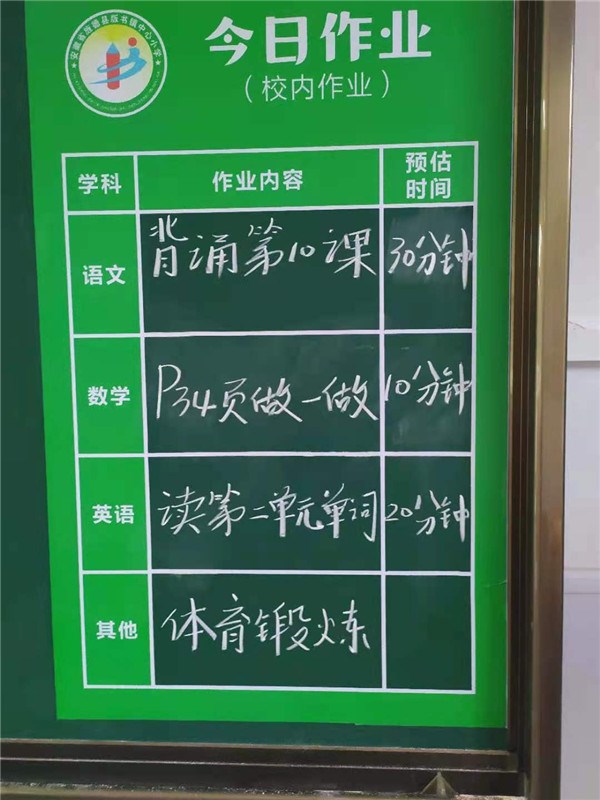 安徽省旌德县版书镇中心小学
今日作业
（校内作业）
学科 作业内容 预估时间
语文 背诵第10课 30分钟
数学 P34页做一做 10分钟
英语 读第二单元单词 20分钟
其他 体育锻炼